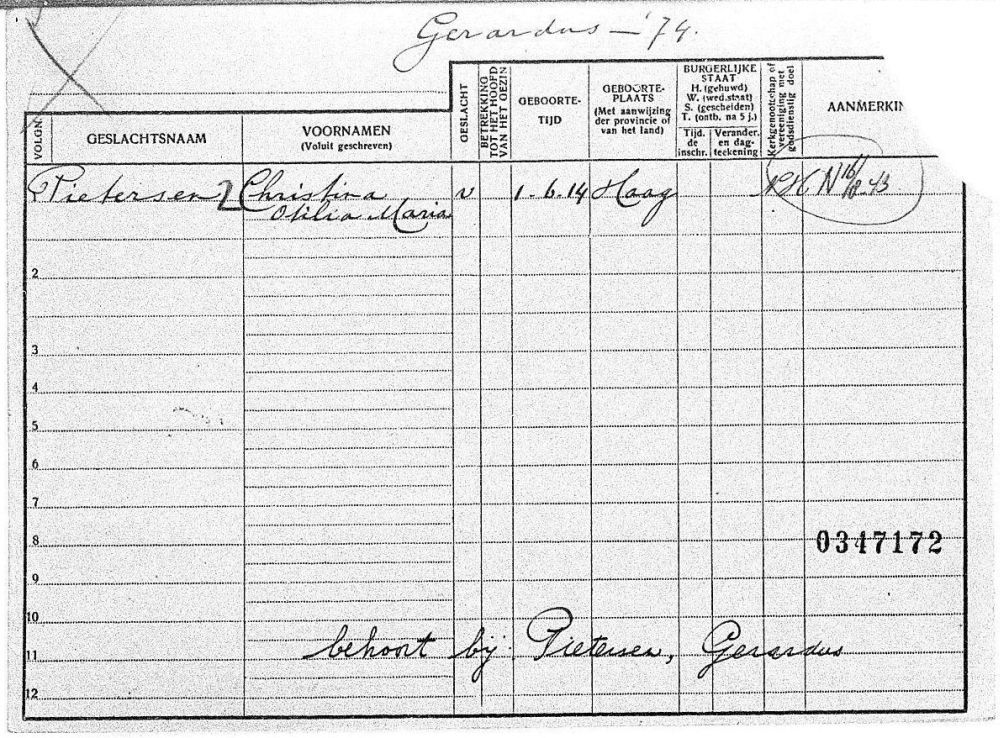 Gerardus — '74.
VOLGN.
GESLACHTSNAAM
VOORNAMEN
(Voluit geschreven)
GESLACHT
BETREKKING
TOT HET HOOFD
VAN HET GEZIN
GEBOORTE-
TIJD
GEBOORTE-
PLAATS
(Met aanwijzing
der provincie of
van het land)
BURGERLIJKE
STAAT
H. (gehuwd)
W. (wed.staat)
S. (gescheiden)
T. (ontb. na 5 j.)
Tijd.
de
inschr.
Verander.
en dag-
teekening
Kerkgenootschap of
vereeniging met
godsdienstig doel
AANMERKIN
Pietersen Christina v 1-6.14 Haag NH N 16/8-43
Otilia Maria
2
3
4
5
6
7
8
0347172
9
10
behoort bij Pietersen, Gerardus
11
12